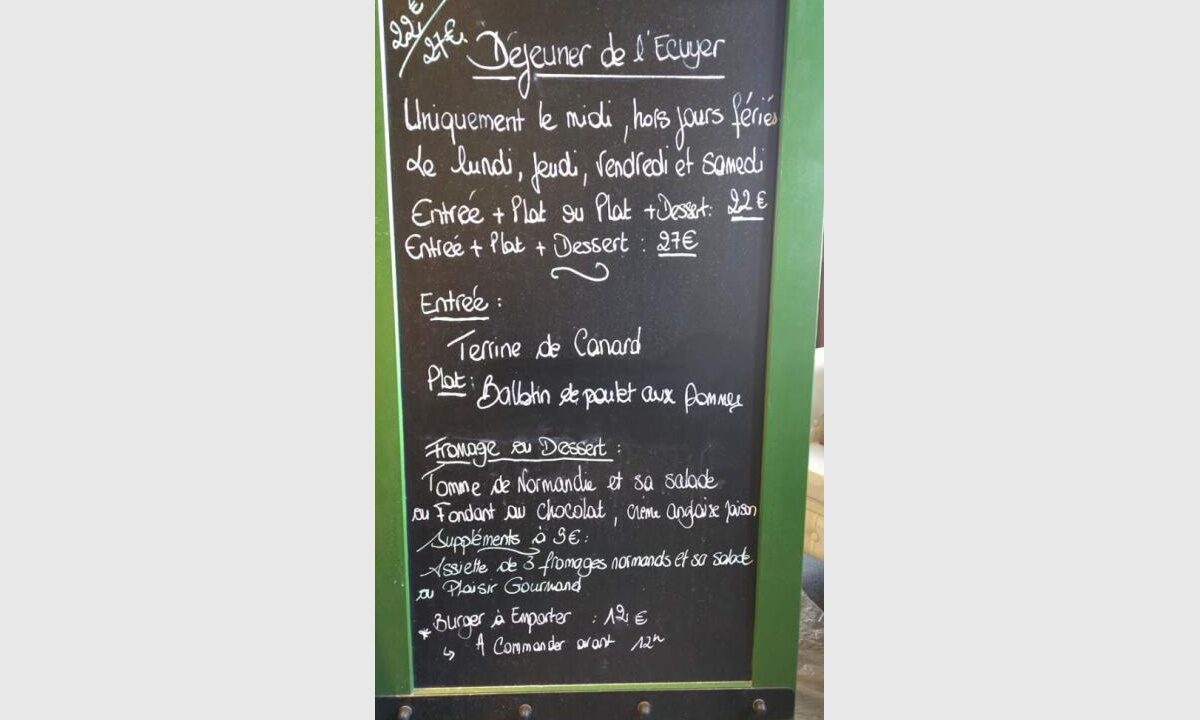 22€/27€
Déjeuner de l'Ecuyer
Uniquement le midi, hors jours fériés
Le lundi, jeudi, vendredi et samedi
Entrée + Plat ou Plat + Dessert : 22€
Entrée + Plat + Dessert : 27€
Entrée :
Terrine de Canard
Plat : Ballotin de poulet aux pommes
Fromage ou Dessert :
Tomme de Normandie et sa salade
ou Fondant au chocolat, crème anglaise maison
Suppléments à 3€ :
Assiette de 3 fromages normands et sa salade
ou Plaisir Gourmand
* Burger à Emporter : 12€
↳ A Commander avant 12h